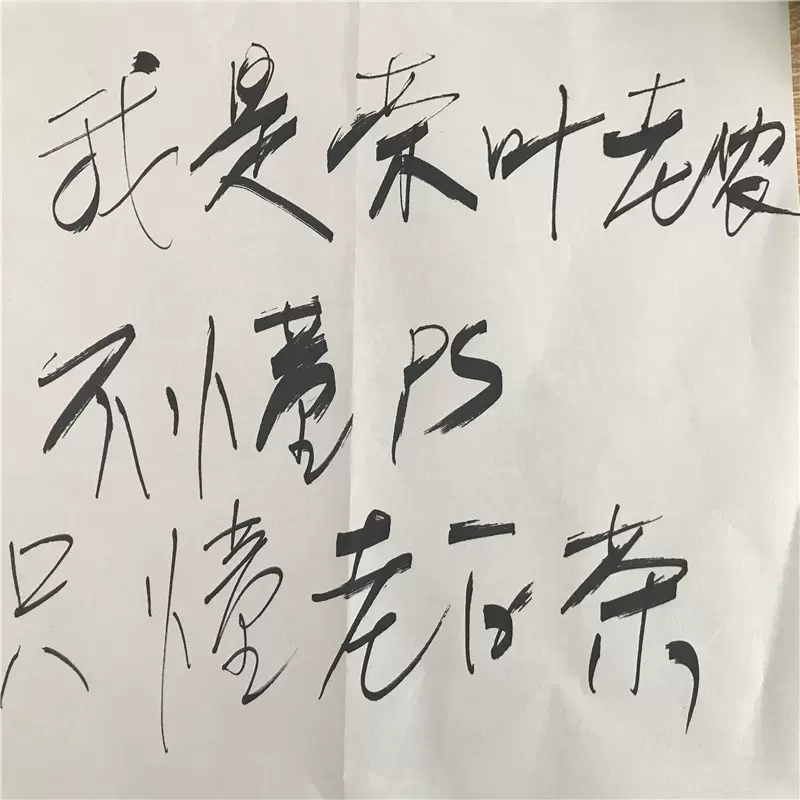 我是茶叶老农
不懂PS
只懂老白茶,